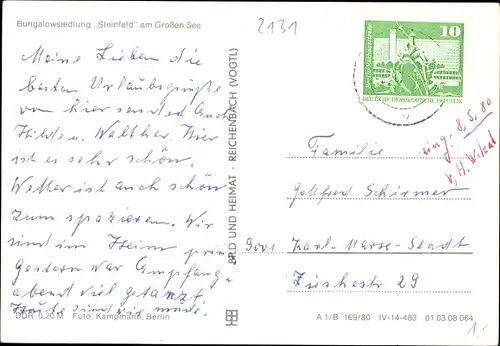 Bungalowsiedlung „Steinfeld“ am Großen See
2131
Meine Lieben die
besten Urlaubsgrüße
von hier sendet Euch
Hilde u. Walther. Hier
ist es sehr schön,
Wetter ist auch schön
zum spazieren. Wir
sind im Heim prima
Gestern war Empfangs
abend viel getanzt.
Heute sind wir müde.
DDR 0,20 M Foto: Kampmann, Berlin
BILD UND HEIMAT · REICHENBACH (VOGTL)
10
DEUTSCHE DEMOKRATISCHE REPUBLIK
eing. 8.5.80
v. H.
Familie
Gottfred Schirmer
9001 Karl-Marx-Stadt
29
A 1/B 169/80 IV-14-483 01 03 08 064
1.-